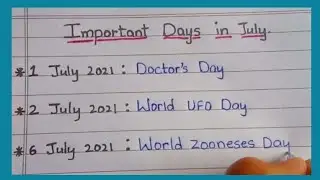 Important Days in July.
* 1 July 2021 : Doctor's Day
* 2 July 2021 : World UFO Day
* 6 July 2021 : World Zooneses Day